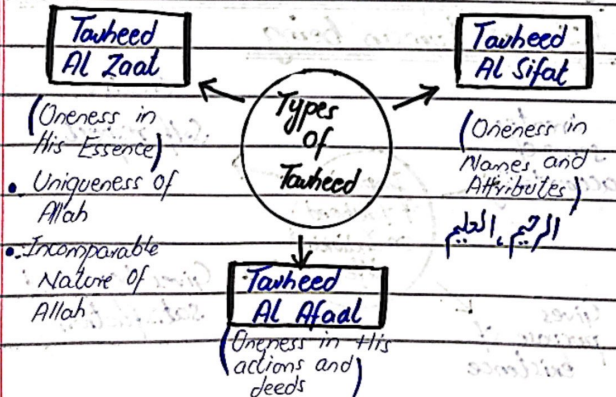 Tawheed
Al Zaat
(Oneness in
His Essence)
• Uniqueness of
Allah
• Incomparable
Nature of
Allah
Types
Of
Tawheed
Tawheed
Al Sifat
(Oneness in
Names and
Attributes)
الرحیم، العلیم
Tawheed
Al Afaal
(Oneness in His
actions and
deeds)